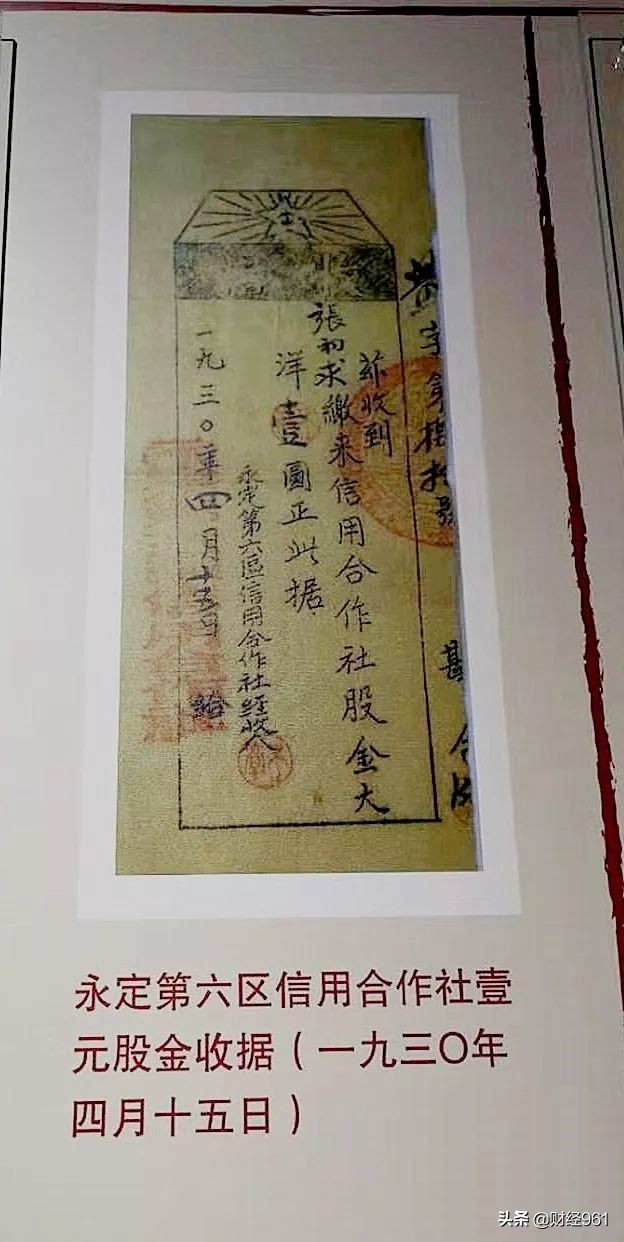 字第
茲收到
張初求繳来信用合作社股金大
洋壹圓正此据
永定第六區信用合作社經收人
一九三〇年四月十五日 給
永定第六区信用合作社壹
元股金收据（一九三〇年
四月十五日）
头条 @财经961